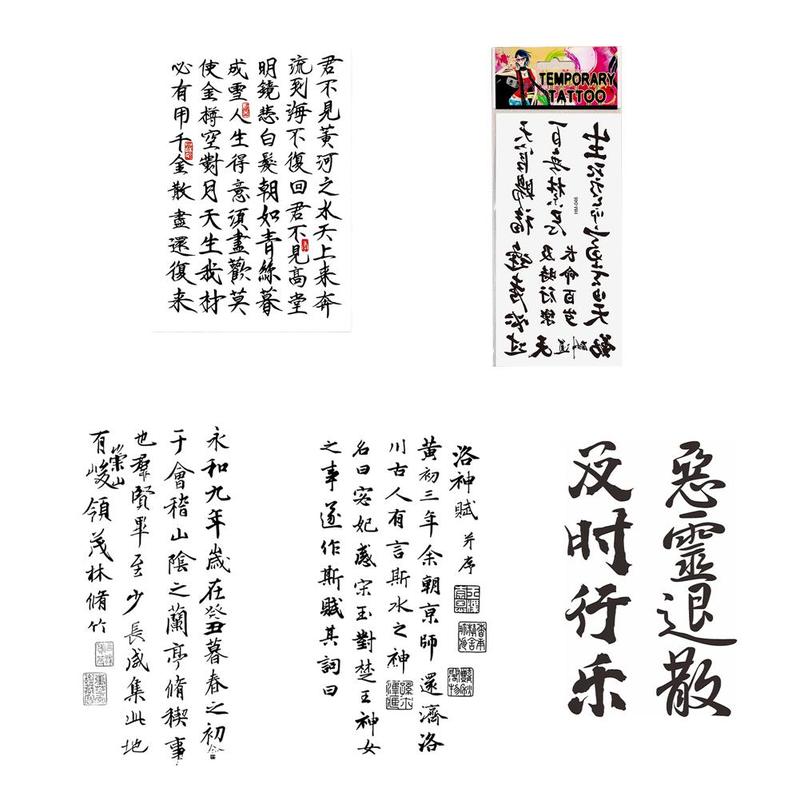 君不見黃河之水天上来奔
流到海不復回君不見高堂
明鏡悲白髮朝如青絲暮
成雪人生得意須盡歡莫
使金樽空對月天生我材
必有甲千金散盡還復来
TEMPORARY
TATTOO
天官賜福
百無禁忌
长命百岁
及時行樂
逢考必过
天道酬勤
永和九年歲在癸丑暮春之初会
于會稽山陰之蘭亭脩禊事
也群賢畢至少長咸集此地
有崇山峻領茂林脩竹
洛神賦 并序
黄初三年余朝京師還濟洛
川古人有言斯水之神
名曰宓妃感宋玉對楚王神女
之事遂作斯賦其詞曰
惡靈退散
及时行乐